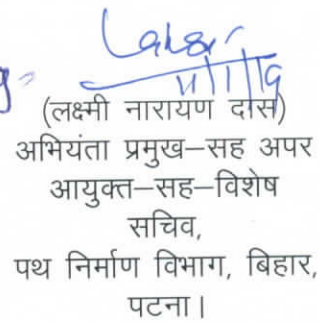 11/1/19
(लक्ष्मी नारायण दास)
अभियंता प्रमुख–सह अपर
आयुक्त–सह–विशेष
सचिव,
पथ निर्माण विभाग, बिहार,
पटना।